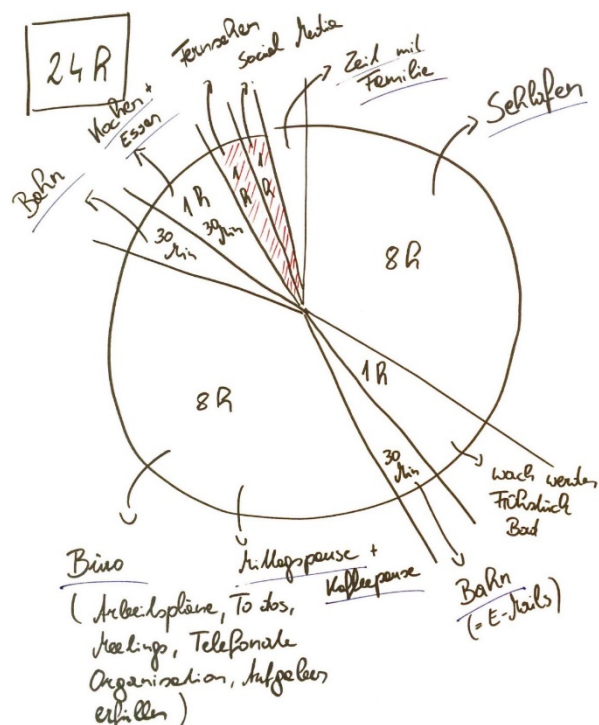 24h
Fernsehen
Social Media
Zeit mit
Familie
Schlafen
Kochen +
Essen
Bahn
1h
30 Min
30 Min
1h
1h
8h
8h
1h
30
Min
wach werden
Frühstück
Bad
Bahn
(= E-Mails)
Mittagspause +
Kaffeepause
Büro
(Arbeitspläne, To dos,
Meetings, Telefonate
Organisation, Aufgaben
erfüllen)